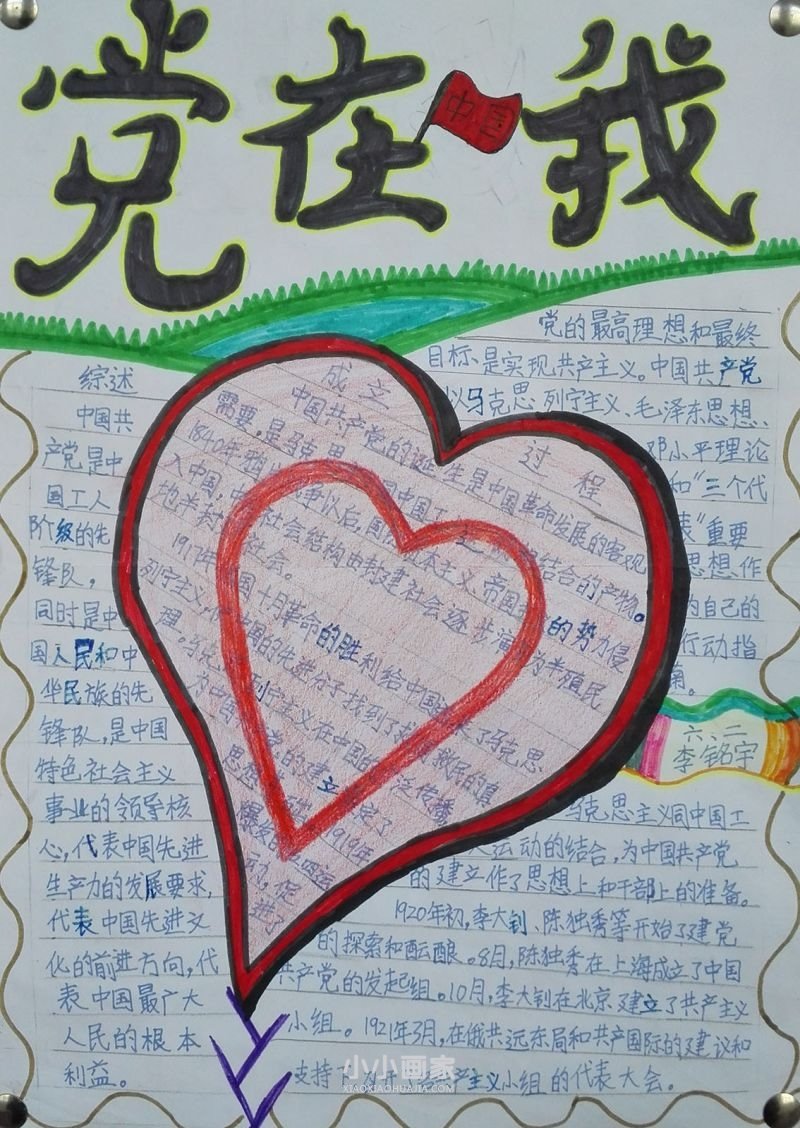 党在我
中国
综述
中国共
产党是中
国工人
阶级的先
锋队，
同时是中
国人民和中
华民族的先
锋队，是中国
特色社会主义
事业的领导核
心，代表中国先进
生产力的发展要求，
代表中国先进文
化的前进方向，代
表中国最广大
人民的根本
利益。
成立过程
中国共产党的诞生是中国革命发展的客观
需要，是马克思
结合的产物。
1840年
战争以后，
本主义帝国
的势力侵
入中国，
社会结构由封建社会逐步演
为半殖民
地半封
社会。
1917年
国十月革命的胜利给中国
来了马克思
列宁主义，
国的先进分子找到了
救民的真
理。马克
列宁主义在中国的
泛传播
为中国
的建立
定了
思想
1919年
爆发的五四运
动，促
进了
党的最高理想和最终
目标，是实现共产主义。中国共产党
以马克思列宁主义、毛泽东思想、
邓小平理论
和“三个代
表”重要
思想作
为自己的
行动指
南。
六、二
李铭宇
马克思主义同中国工
人运动的结合，为中国共产党
的建立作了思想上和干部上的准备。
1920年初，李大钊、陈独秀等开始了建党
的探索和酝酿。8月，陈独秀在上海成立了中国
共产党的发起组。10月，李大钊在北京建立了共产主义
小组。1921年3月，在俄共远东局和共产国际的建议和
支持
主义小组的代表大会。
小小画家
XIAOXIAOHUAJIA.COM